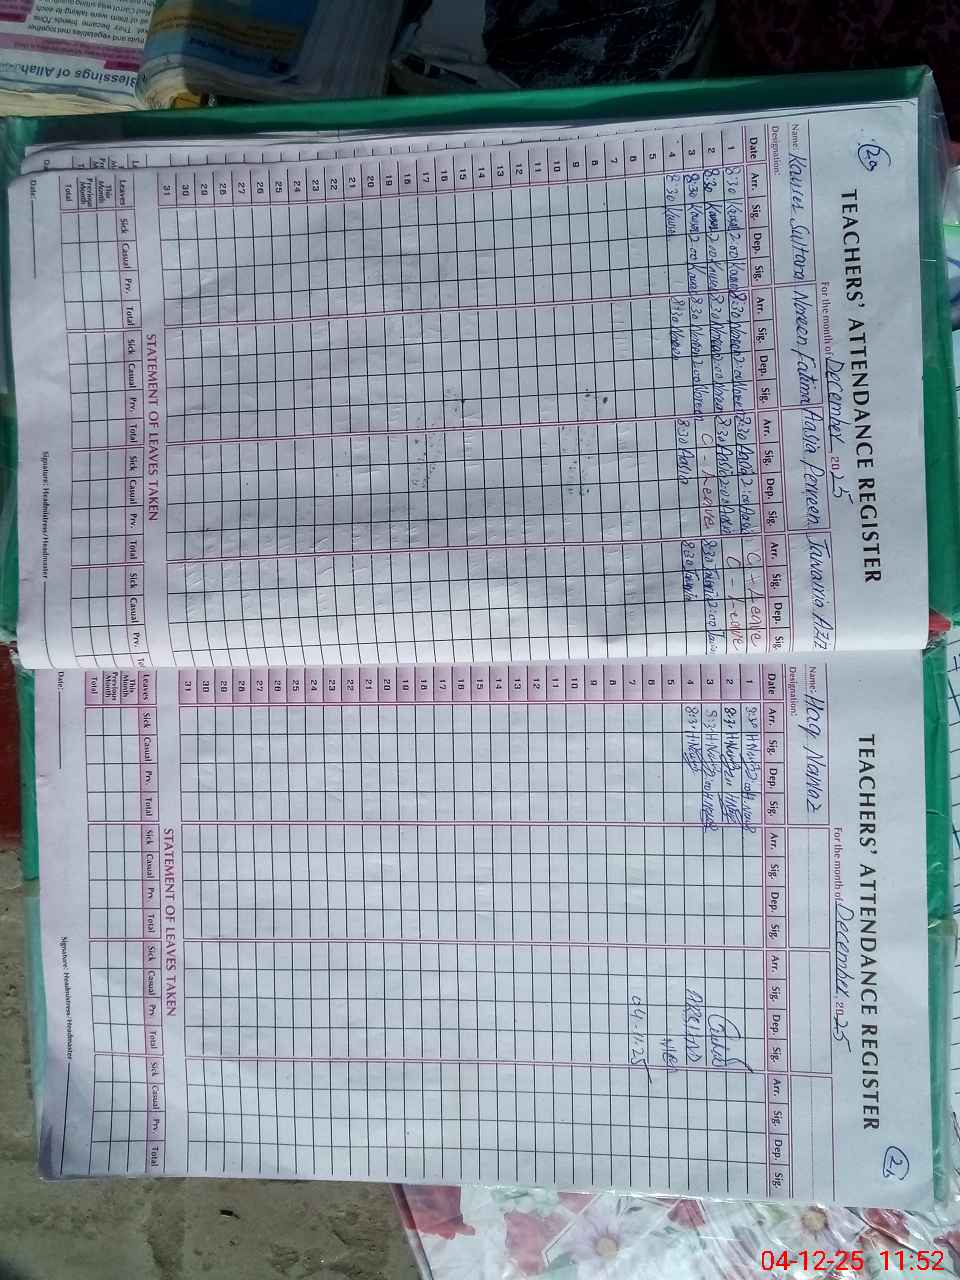 Blessings of Allah
TEACHERS' ATTENDANCE REGISTER
For the month of December, 2025
Name: Kauser Sultana Noreen Fatima Aasia Perveen
Designation:
Date Arr. Sig. Dep. Sig. Arr. Sig. Dep. Sig. Arr. Sig. Dep. Sig. Arr. Sig. Dep. Sig.
1 8:30 2:00 8:30 Noreen 2:00 Noreen 8:30 Aasia 2:00 Aasia C - Leave
2 8:30 2:00 8:30 Noreen 2:00 Noreen 8:30 Aasia 2:00 Aasia C - Leave
3 8:30 2:00 8:30 Noreen 2:00 Noreen C - Leave 8:30 2:00
4 8:30 8:30 Noreen 8:30 Aasia 8:30
5
6
7
8
9
10
11
12
13
14
15
16
17
18
19
20
21
22
23
24
25
26
27
28
29
30
31
STATEMENT OF LEAVES TAKEN
Leaves Sick Casual Prv. Total Sick Casual Prv. Total Sick Casual Prv. Total Sick Casual Prv.
This Month
Precious Month
Total
Date:
Signature: Headmistress/Headmaster
2
TEACHERS' ATTENDANCE REGISTER
For the month of December, 2025
Name: Haq Nawaz
Designation:
Date Arr. Sig. Dep. Sig. Arr. Sig. Dep. Sig. Arr. Sig. Dep. Sig. Arr. Sig. Dep. Sig.
1 8:30 H.Nawaz 2:00 H.Nawaz
2 8:30 H.Nawaz
3 8:30 H.Nawaz 2:00 H.Nawaz
4 8:30 H.Nawaz ARSHAD
5
6
7 04-11-25
8
9
10
11
12
13
14
15
16
17
18
19
20
21
22
23
24
25
26
27
28
29
30
31
STATEMENT OF LEAVES TAKEN
Leaves Sick Casual Prv. Total Sick Casual Prv. Total Sick Casual Prv. Total Sick Casual Prv. Total
This Month
Previous Month
Total
Date:
Signature: Headmistress/Headmaster
04-12-25 11:52